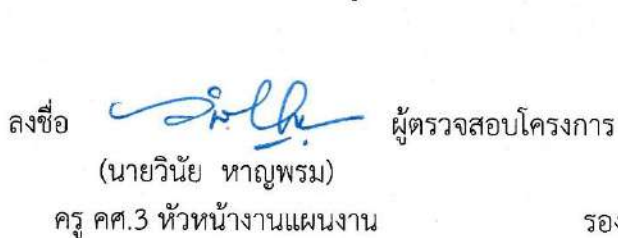 ลงชื่อ ผู้ตรวจสอบโครงการ
(นายวินัย หาญพรม)
ครู คศ.3 หัวหน้างานแผนงาน รอง